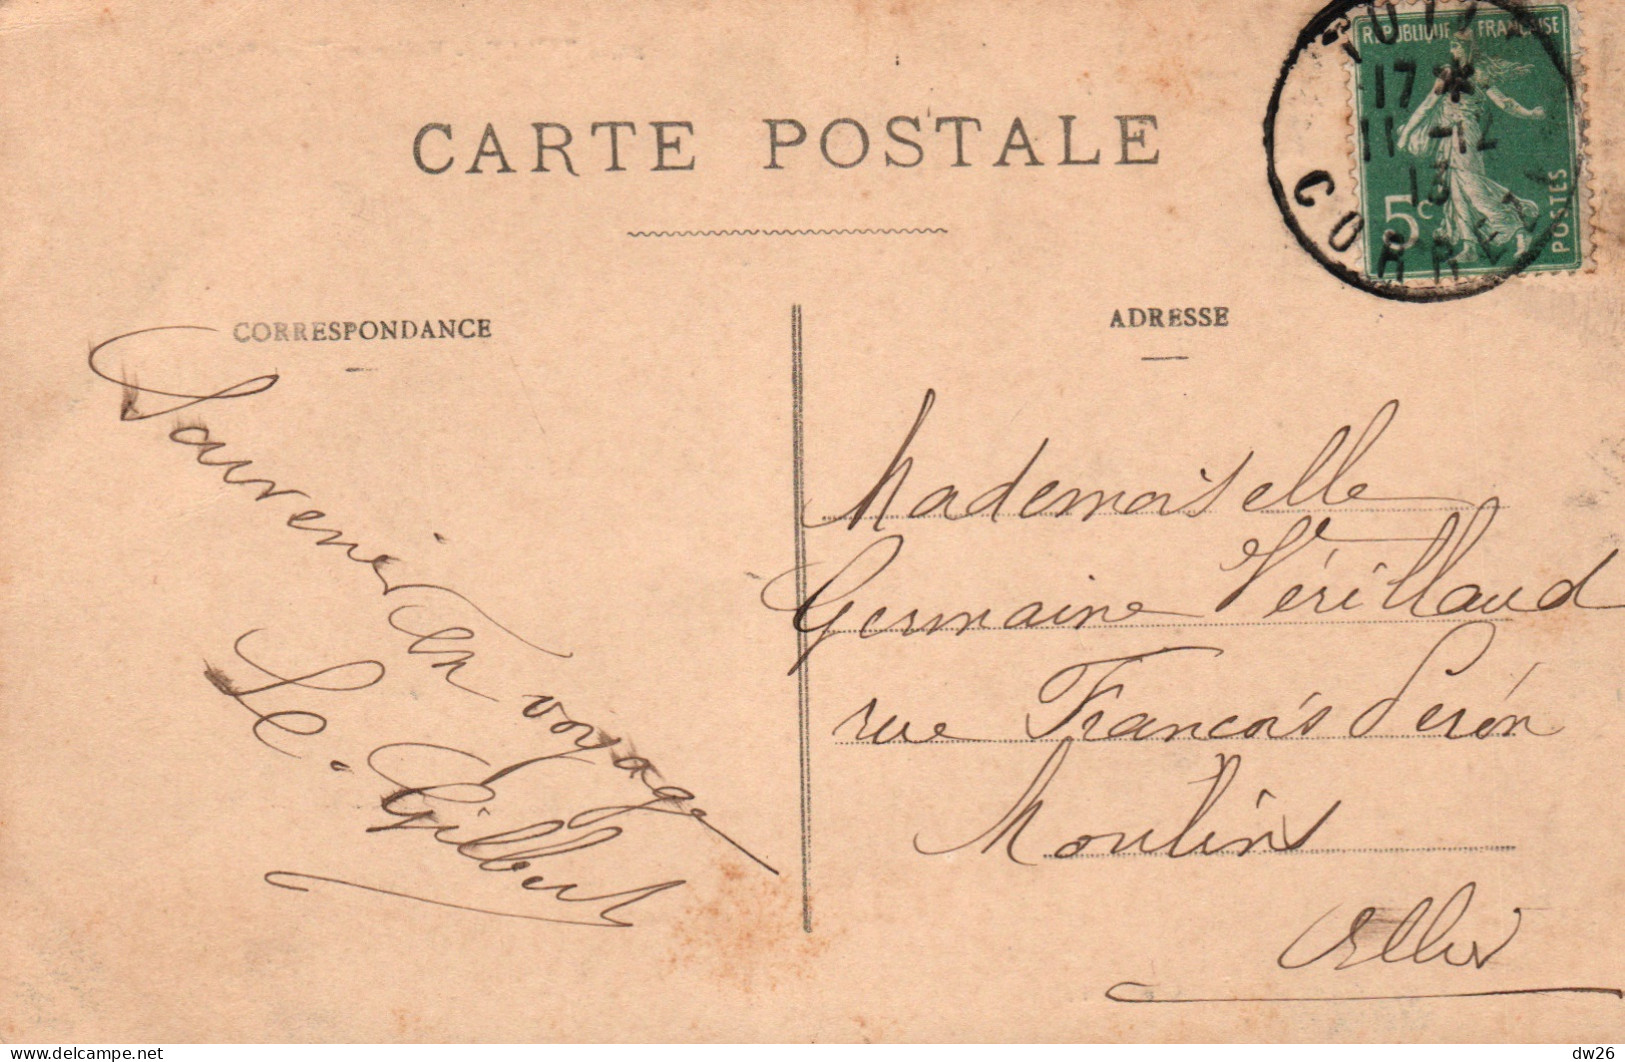 CARTE POSTALE
RÉPUBLIQUE FRANÇAISE
5c
POSTES
17 *
11 -12
13
CORRÈZE
CORRESPONDANCE
Souvenir
en voyage
Gilbert
ADRESSE
Mademoiselle
Germaine Vérillaud
rue François Perón
Moulins
Allier
delcampe.net
dw26